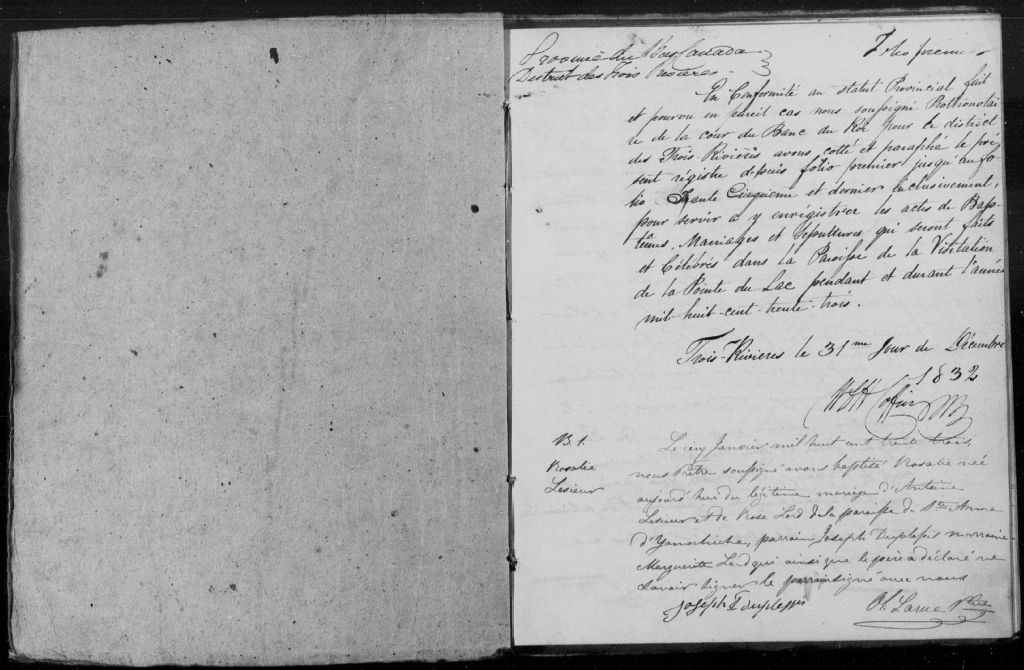 Province du Bas Canada
District des Trois Rivières.
Folio premier
En Conformité au statut Provincial fait
et pourvu en pareil cas nous soussigné Prothonotai
re de la cour du Banc du Roi pour le district
des Trois-Rivières avons cotté et paraphé le pré
sent régistre depuis folio premier jusqu'au fo
lio Trente Cinquième et dernier inclusivement,
pour servir à y enrégistrer les actes de Bap-
têmes, Mariages et sepultures qui seront faits
et Célébrés dans la Paroisse de la Visitation
de la Pointe du Lac pendant et durant l'année
mil-huit-cent-trente-trois.
Trois-Rivières le 31me Jour de Décembre
1832
B. 1.
Rosalie
Lesieur
Le cinq Janvier mil huit cent trente trois
nous Prêtre soussigné avons baptisé Rosalie née
aujourd'hui du légitime mariage d'Antoine
Lesieur et de Rose Lord de la paroisse de Ste Anne
d'Yamachiche, parrain Joseph Duplessis marraine
Marguerite Lord qui ainsi que le père a déclaré ne
savoir signer le parrain signé avec nous
Joseph Duplessis
Larue Ptre